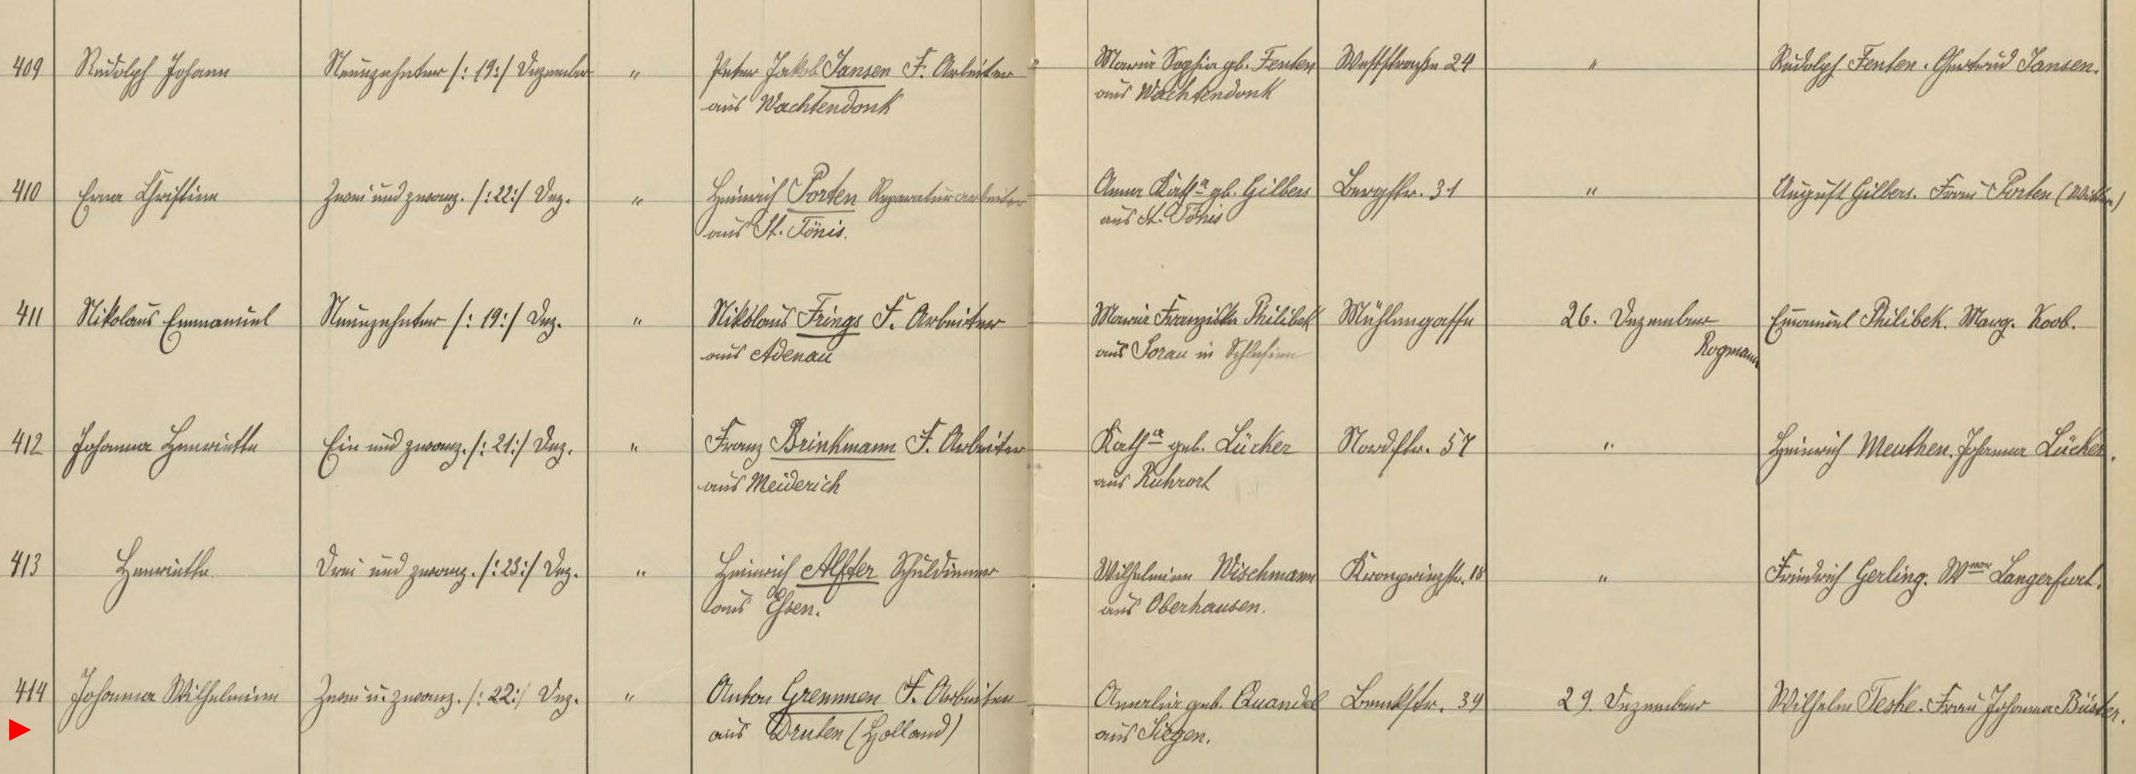 409 Rudolph Johann Neunzehnter /:19:/ Dezember " Peter Jakob Jansen F. Arbeiter Maria Sophia gb. Fenten Weststraße 24 " Rudolph Fenten. Gertrud Jansen.
aus Wachtendonk aus Wachtendonk
410 Erna Christina Zwei und zwanz. /:22:/ Dez. " Heinrich Porten Reparaturarbeiter Anna Katha gb. Gilbers Bergstr. 31 " August Gilbers. Frau Porten
aus St. Tönis. aus St. Tönis
411 Nikolaus Emmanuel Neunzehnter /:19:/ Dez. " Nikolaus Frings F. Arbeiter Maria Franziska Philibek Mühlengasse 26. Dezember Emanuel Philibek. Marg. Koob.
aus Adenau aus Sorau in Schlesien Rogmann
412 Johanna Henriette Ein und zwanz. /:21:/ Dez. " Franz Brinkmann F. Arbeiter Katha geb. Lücker Nordstr. 57 " Heinrich Meuthen. Johanna Lücker.
aus Meiderich aus Ruhrort
413 Henriette Drei und zwanz. /:23:/ Dez. " Heinrich Alfter Schuldiener Wilhelmina Wischmann Kronprinzstr. 18 " Friedrich Gerling. Langerfurt.
aus Essen. aus Oberhausen.
414 Johanna Wilhelmina Zwei u. zwanz. /:22:/ Dez. " Anton Gremmen F. Arbeiter Amalia geb. Quandel 39 29. Dezember Wilhelm Teske. Frau Johanna Büster.
aus Druten (Holland) aus Siegen.